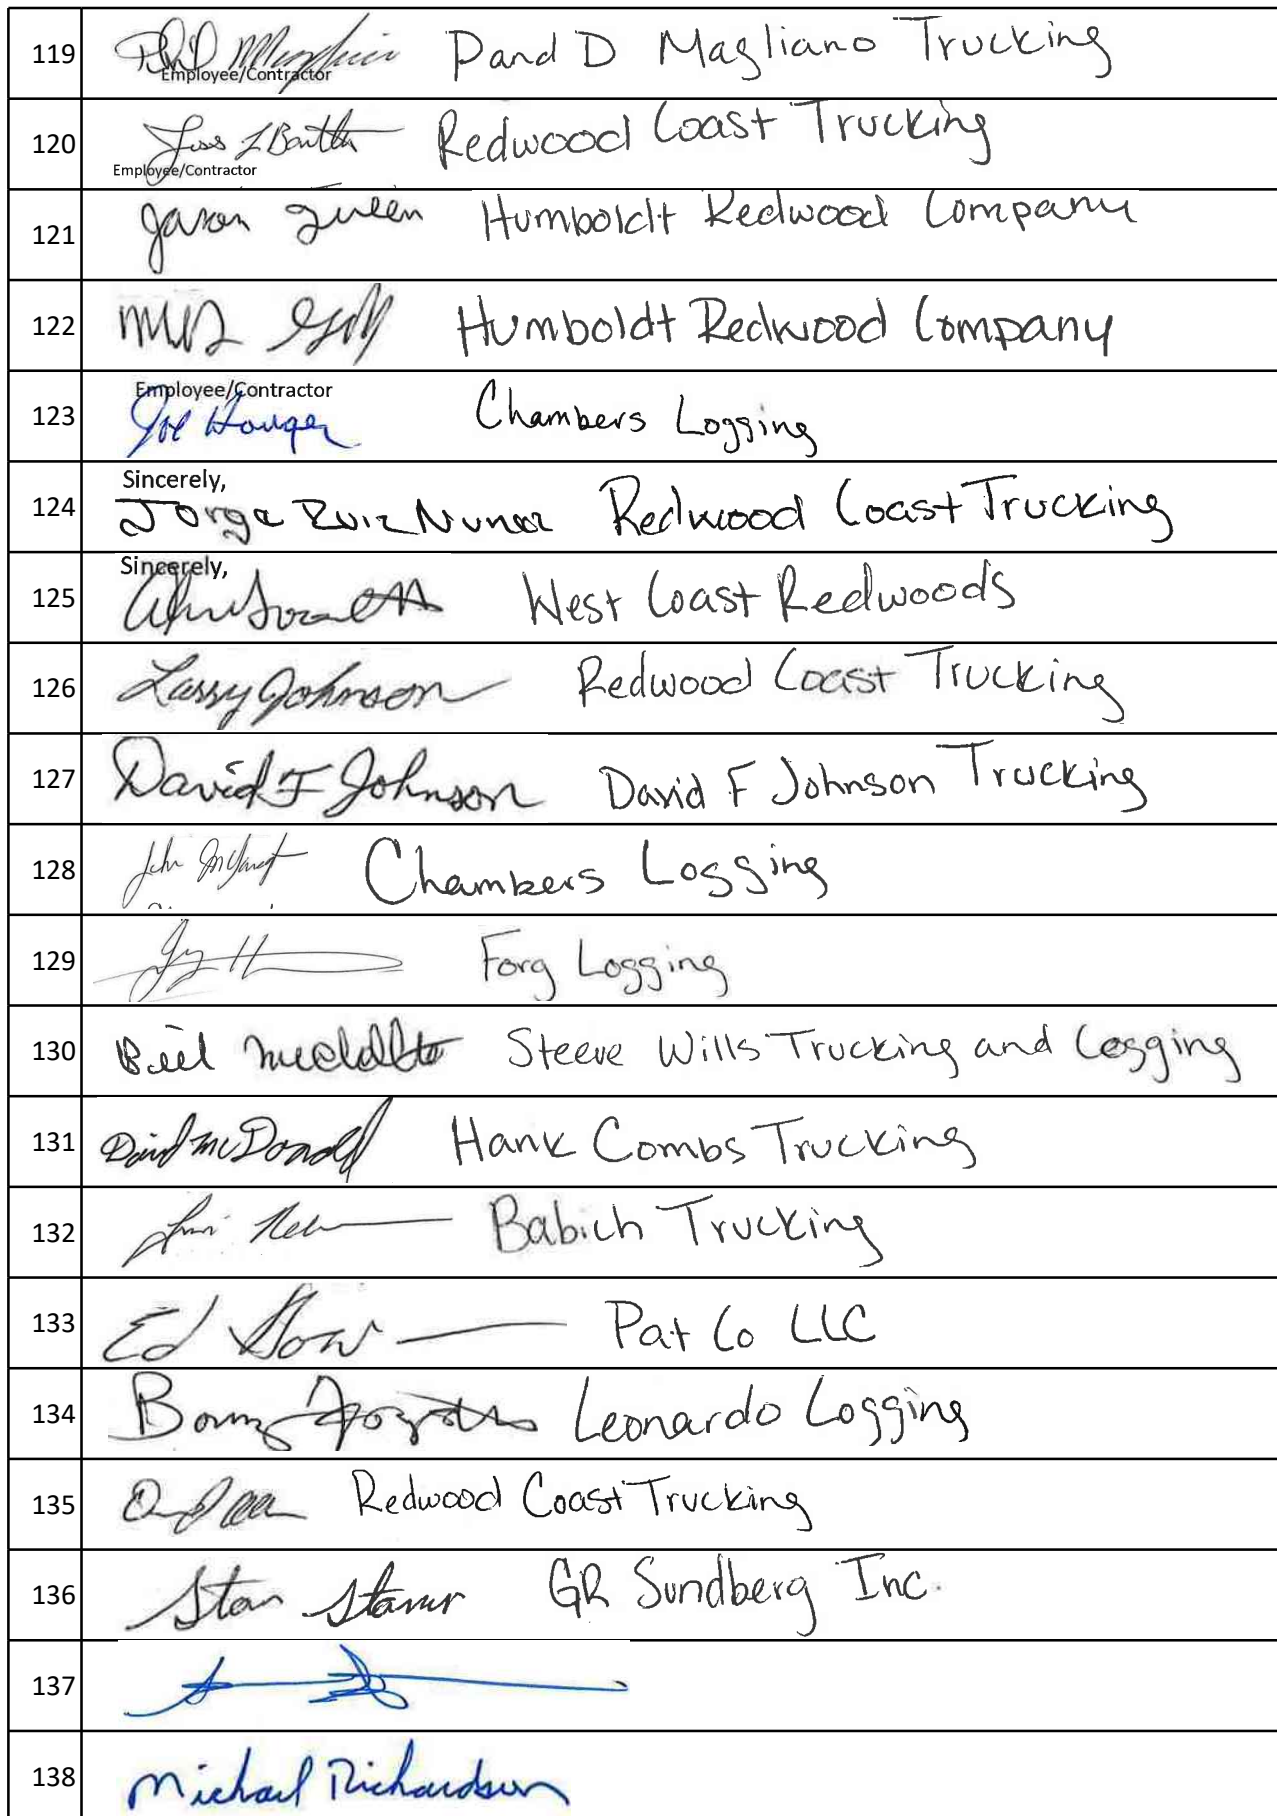 119 Pand D Magliano Trucking
Employee/Contractor
120 Redwood Coast Trucking
Employee/Contractor
121 Jason Green Humboldt Redwood Company
122 Humboldt Redwood Company
Employee/Contractor
123 Joe Chambers Logging
Sincerely,
124 Jorge Ruiz Nunez Redwood Coast Trucking
Sincerely,
125 West Coast Redwoods
126 Larry Johnson Redwood Coast Trucking
127 David F Johnson David F Johnson Trucking
128 John Chambers Logging
129 Forg Logging
130 Bill Steeve Wills Trucking and Logging
131 David McDonald Hank Combs Trucking
132 Babich Trucking
133 Ed Pat Co LLC
134 Leonardo Logging
135 Redwood Coast Trucking
136 Stan GR Sundberg Inc.
137
138 Michael Richardson